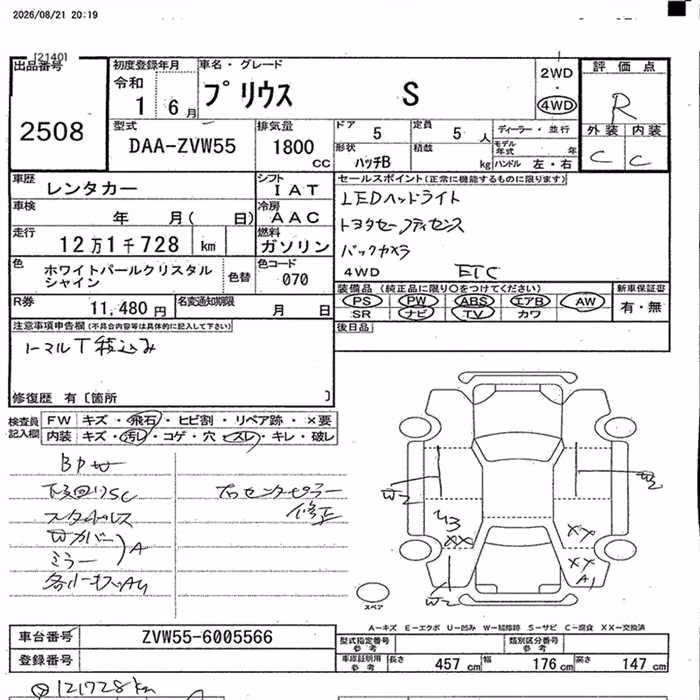 2026/08/21 20:19
[2140]
出品番号
2508
初度登録年月
令和 1 6月
車名・グレード
プリウス S
2WD
・
4WD
評価点
R
外装 内装
C C
型式
DAA-ZVW55
排気量
1800 cc
ドア 5
定員 5 人
形状 ハッチB
積載 kg
ディーラー・並行
モデル年式 年
ハンドル 左・右
車歴 レンタカー
シフト IAT
車検 年 月( 日)
冷房 AAC
走行 12万1千728 km
燃料 ガソリン
色 ホワイトパールクリスタル
シャイン
色替
色コード 070
R券 11,480円
名変通知期限 月 日
セールスポイント(正常に機能するものに限ります)
LEDヘッドライト
トヨタセーフティセンス
バックカメラ
4WD ETC
装備品 (純正品に限り○をつけてください)
新車保証書
PS PW ABS エアB AW
SR ナビ TV カワ
有・無
後日品
注意事項申告欄(不具合内容等は具体的に記入して下さい)
ノーマルT積込み
修復歴 有〔箇所 〕
検査員
記入欄
FW キズ・飛石・ヒビ割・リペア跡・×要
内装 キズ・汚レ・コゲ・穴・スレ・キレ・破レ
ミラー
A
修正
W2
W2
U3
XX
XX
XX
A1
W2
スペア
A-キズ E-エクボ U-凹み W-補修跡 S-サビ C-腐食 XX-交換済
車台番号 ZVW55-6005566
登録番号
型式指定番号
参考
類別区分番号
参考
車庫証明用
参考
長さ 457 cm
幅 176 cm
高さ 147 cm
121728km